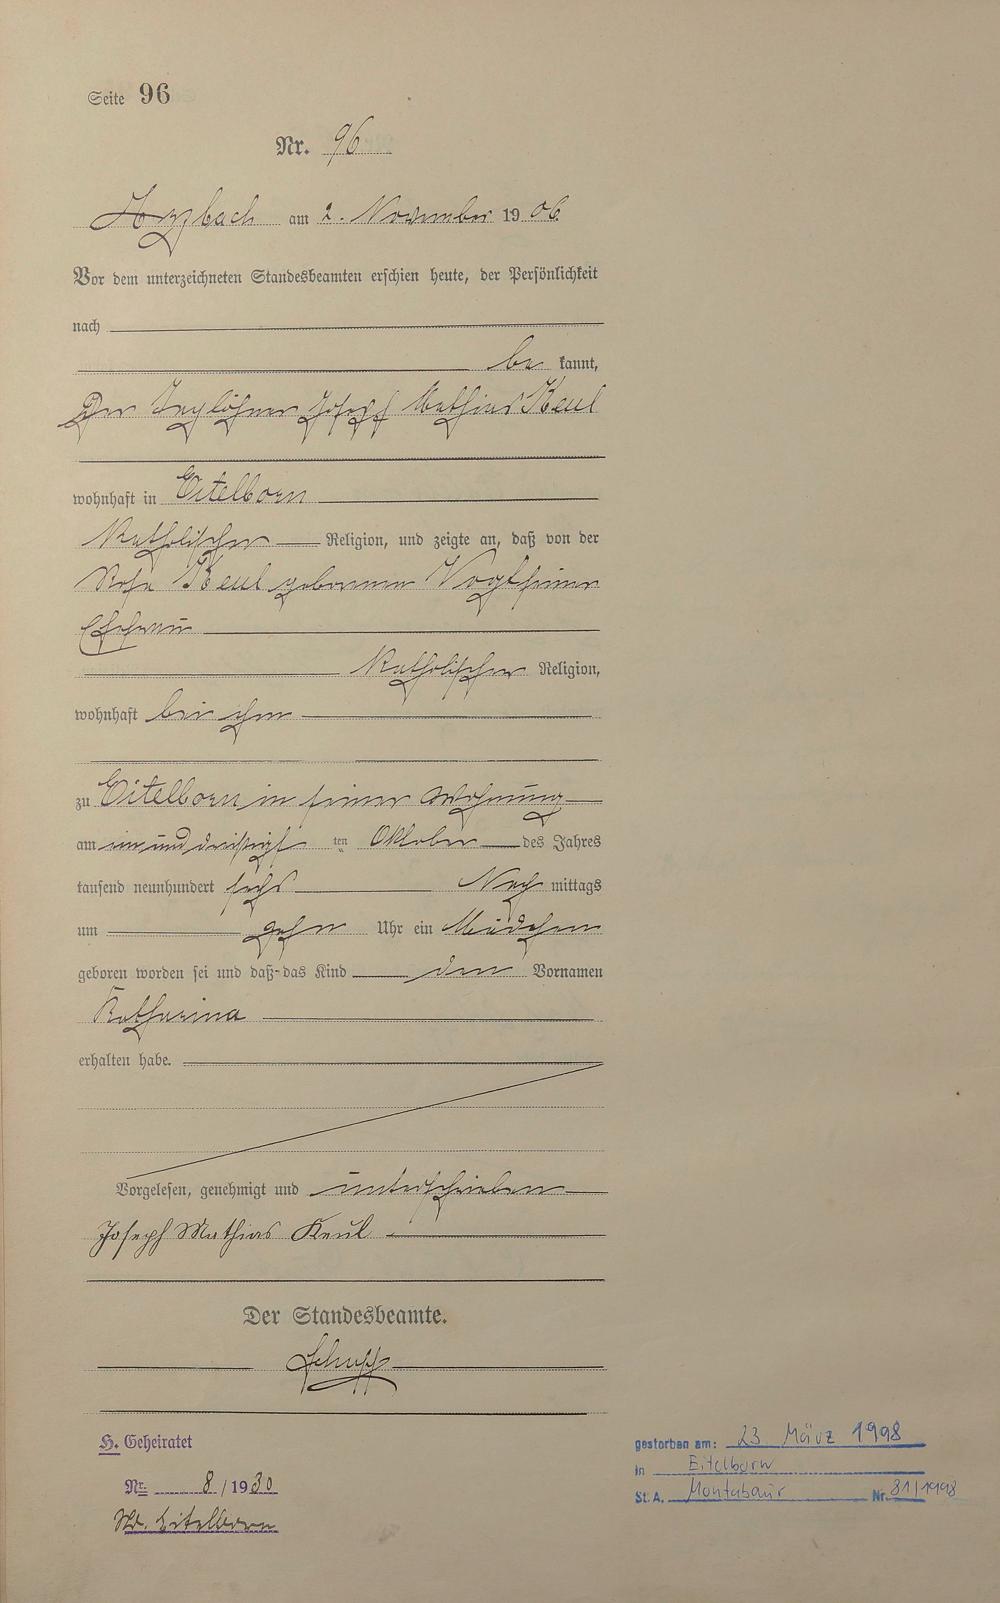 Seite 96
Nr. 96
Arzbach am 2. November 1906
Vor dem unterzeichneten Standesbeamten erschien heute, der Persönlichkeit
nach
be kannt,
Der Taglöhner Joseph Mathias Keul
wohnhaft in Eitelborn
Katholischer Religion, und zeigte an, daß von der
Rosa Keul geborenen Vogt seiner
Ehefrau
Katholischer Religion,
wohnhaft bei ihm
zu Eitelborn in seiner Wohnung
am ein und dreißigsten Oktober des Jahres
tausend neunhundert sechs Nach mittags
um zehn Uhr ein Mädchen
geboren worden sei und daß das Kind den Vornamen
Katharina
erhalten habe.
Vorgelesen, genehmigt und unterschrieben
Joseph Mathias Keul
Der Standesbeamte.
H. Geheiratet
Nr. 8/1930
St. Eitelborn
gestorben am: 23 März 1998
in Eitelborn
St. A. Montabaur Nr. 81/1998